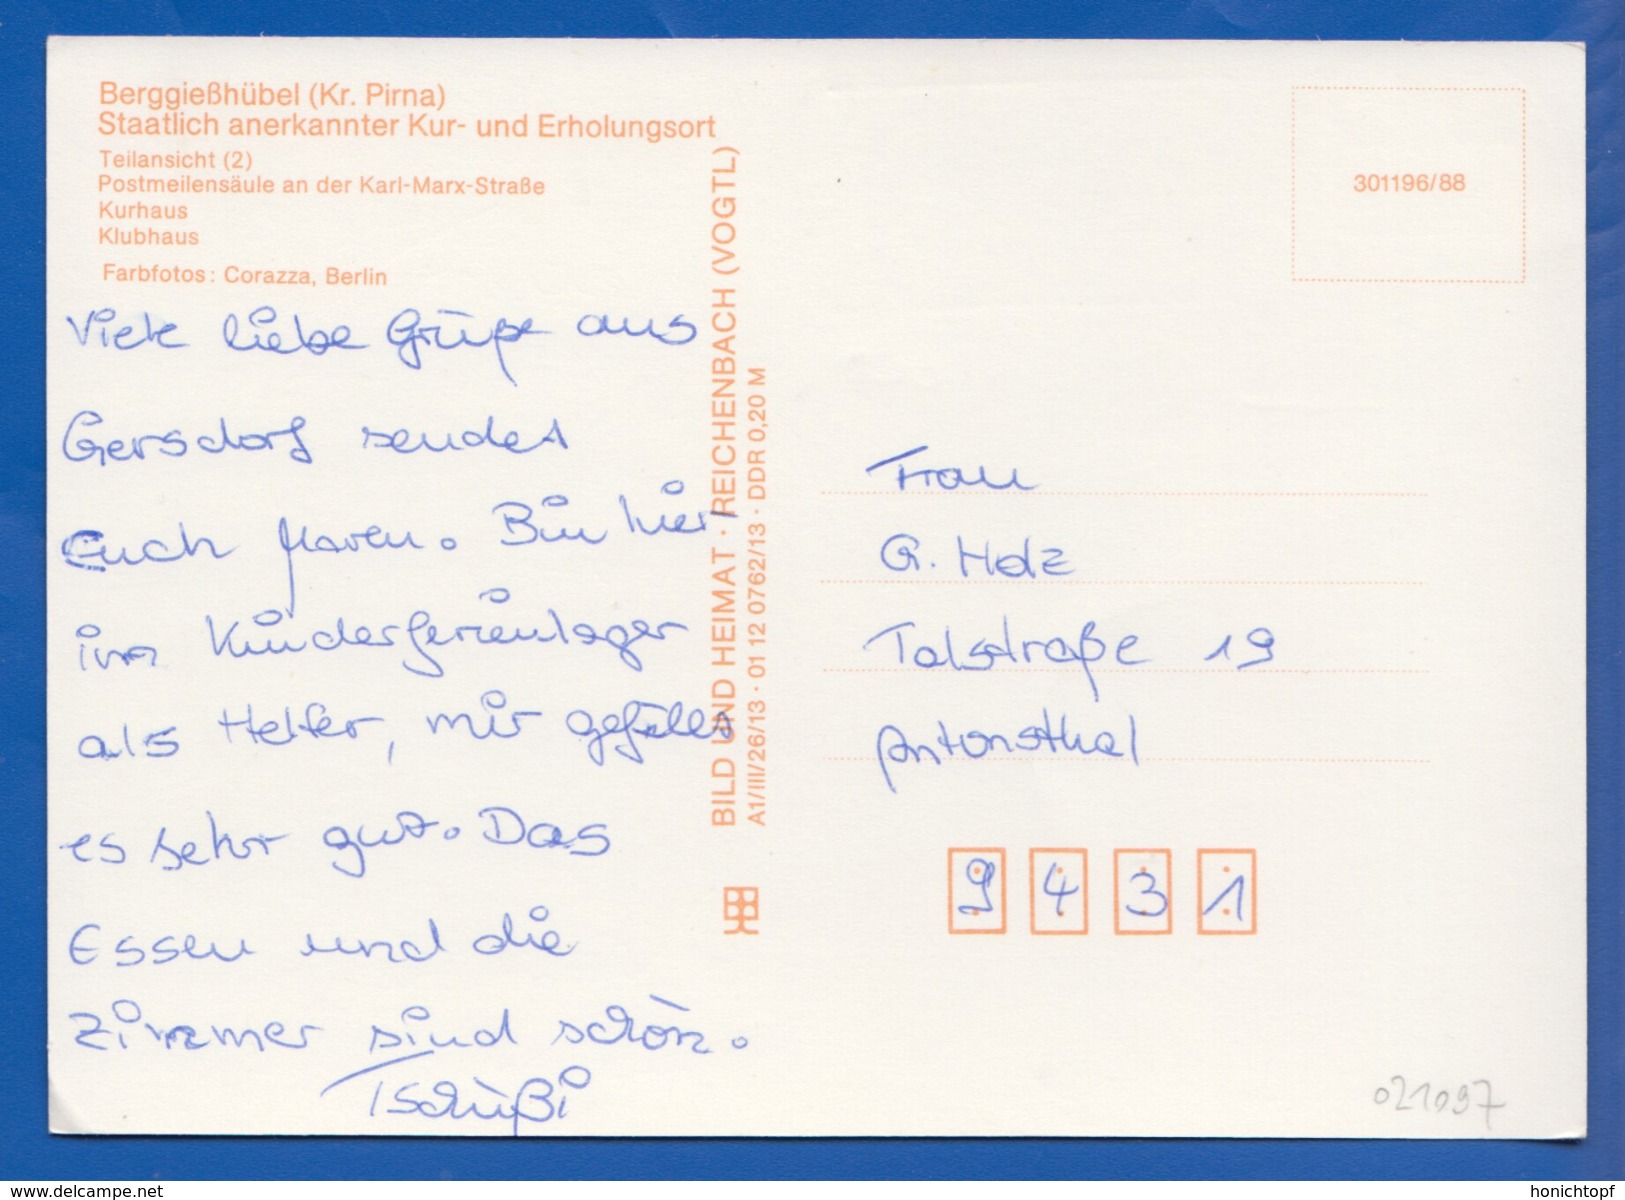 Berggießhübel (Kr. Pirna)
Staatlich anerkannter Kur- und Erholungsort
Teilansicht (2)
Postmeilensäule an der Karl-Marx-Straße
Kurhaus
Klubhaus
Farbfotos: Corazza, Berlin
Viele liebe Grüße aus
Gersdorf sendet
Euch Maren. Bin hier
im Kinderferienlager
als Helfer, mir gefällts
es sehr gut. Das
Essen und die
Zimmer sind schön.
Tschüßi
BILD UND HEIMAT · REICHENBACH (VOGTL)
A1/III/26/13 · 01 12 0762/13 · DDR 0,20 M
301196/88
Frau
G. Holz
Talstraße 19
Antonsthal
9 4 3 1
021097
www.delcampe.net
honichtopf